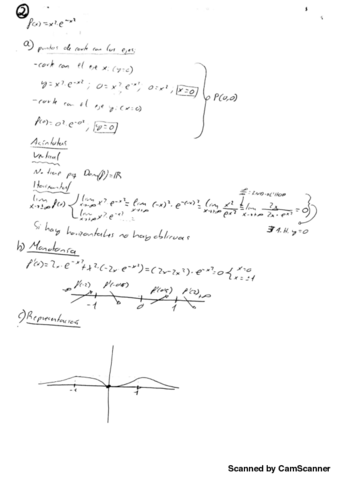 2
f(x)=x²·e^-x²
a) puntos de corte con los ejes:
- corte con el eje x: (y=0)
y=x²·e^-x² ; 0=x²·e^-x² ; 0=x² ; x=0
P(0,0)
- corte con el eje y: (x=0)
f(0)=0²·e^-0² ; y=0
Asíntotas
Vertical
No tiene pq Dom f(x)=ℝ
Horizontal
lim f(x) lim x²·e^-x² = lim (-x)²·e^-(-x)² = lim x²/e^x² = lim 2x/2x·e^x² = 0
lim x²·e^-x²
∃ A.H. y=0
Si hay horizontales no hay oblicuas
b) Monotonía
f'(x)=2x·e^-x²+x²·(-2x·e^-x²)=(2x-2x³)·e^-x²=0 x=0
x=±1
f'(-2) f'(-0'5) f'(0'5) f'(2)
-1 0 1
c) Representación
-1 1
Scanned by CamScanner